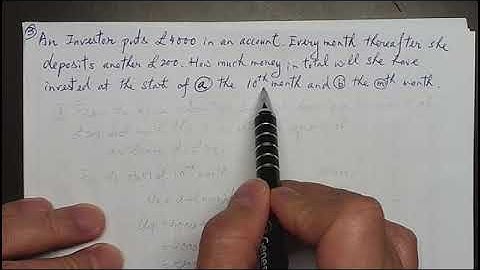 ③ An Investor puts £4000 in an account. Every month thereafter she
deposits another £200. How much money in total will she have
invested at the start of ⓐ the 10th month and ⓑ the mth month.